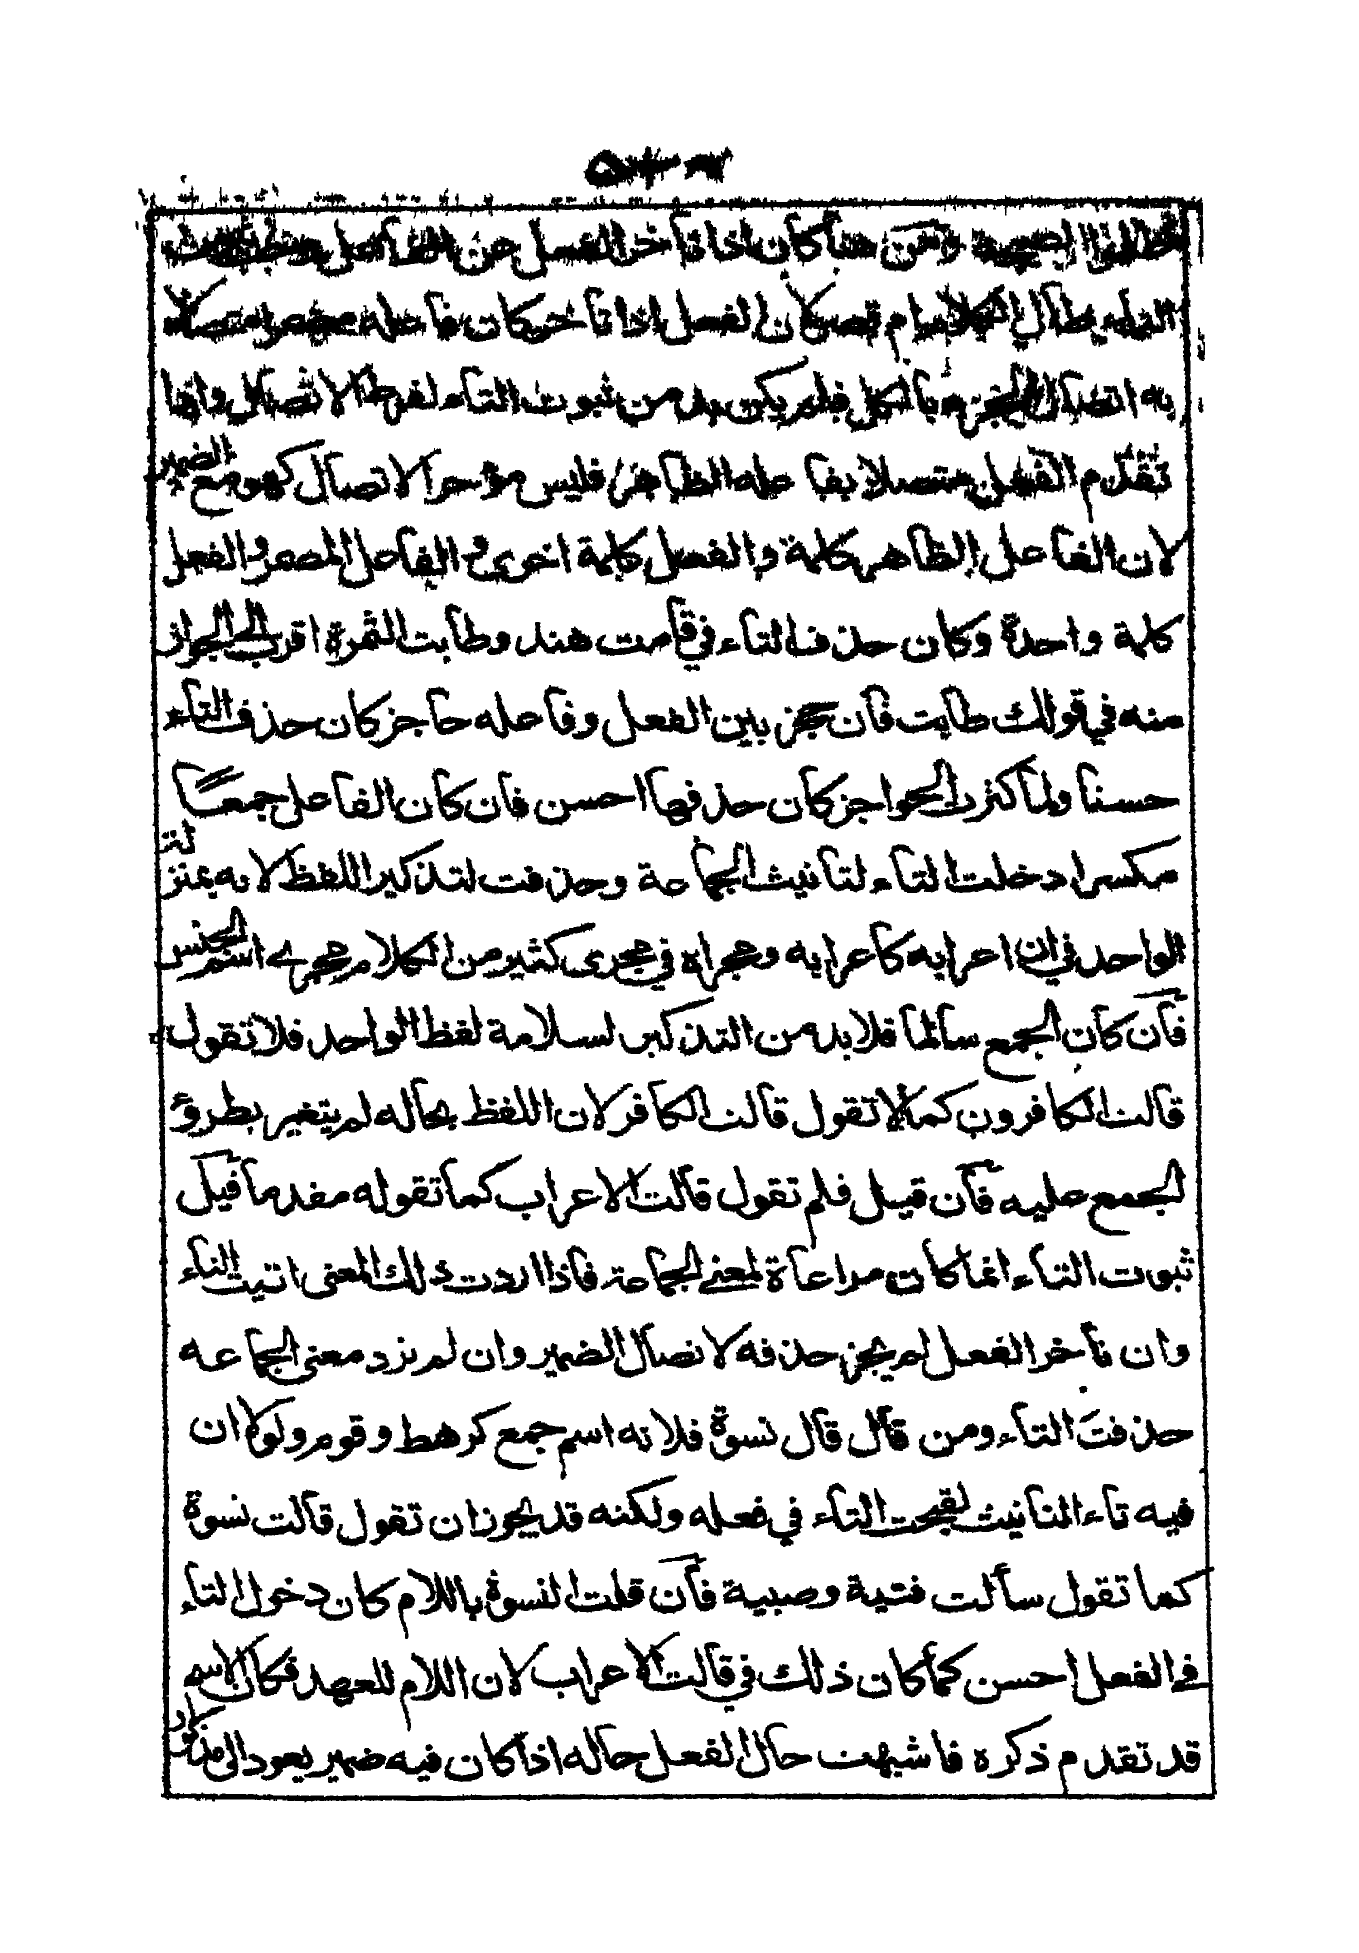 ومن هنا كان اذا تأخر الفعل عن الفاعل وجب ثبوت
التاء طال الكلام ام قصر لان الفعل اذا تأخر كان فاعله مضمرا متصلا
به اتصال الجزء بالكل فلم يكن بد من ثبوت التاء لفرط الاتصال واذا
تقدم الفعل متصلا بفاعله الظاهر فليس مؤخر الاتصال كهو مع المضمر
لان الفاعل الظاهر كلمة والفعل كلمة اخرى والفاعل المضمر والفعل
كلمة واحدة وكان حذف التاء في قامت هند وطابت الثمرة اقرب الى الجواز
منه في قولك طابت فان حجز بين الفعل وفاعله حاجز كان حذف التاء
حسنا ولما كثرت الحواجز كان حذفها احسن فان كان الفاعل جمعا
مكسرا دخلت التاء لتانيث الجماعة وحذفت لتذكير اللفظ لانه بمنزلة
الواحد في ان اعرابه كاعرابه ومجراه في مجرى كثير من الكلام مجرى اسم الجنس
فان كان الجمع سالما فلا بد من التذكير لسلامة لفظ الواحد فلا تقول
قالت الكافرون كما لا تقول قالت الكافر لان اللفظ بحاله لم يتغير بطرو
الجمع عليه فان قيل فلم تقول قالت الاعراب كما تقوله مفدما قيل
ثبوت التاء انما كان مراعاة لمعنى الجماعة فاذا اردت ذلك المعنى اتيت التاء
وان تأخر الفعل لم يجز حذفه لاتصال الضمير وان لم ترد معنى الجماعه
حذفت التاء ومن قال قال نسوة فلانه اسم جمع كرهط وقوم ولولا ان
فيه تاء التانيث لقبحت التاء في فعله ولكنه قد يجوز ان تقول قالت نسوة
كما تقول سألت فتية وصبية فان قلت النسوة باللام كان دخول التاء
في الفعل احسن كما كان ذلك في قالت الاعراب لان اللام للعهد فكان الاسم
قد تقدم ذكره فاشبهت حال الفعل حاله اذا كان فيه ضمير يعود الى مذكور